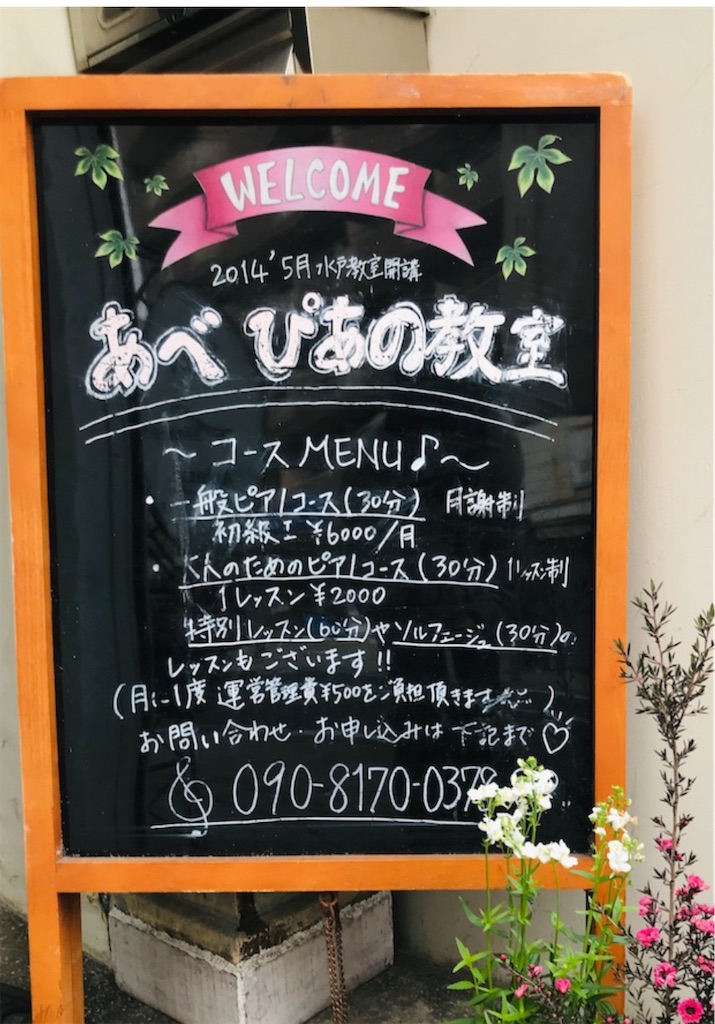 WELCOME
2014'5月 水戸教室開講
あべ ぴあの教室
～コースMENU♪～
・一般ピアノコース(30分) 月謝制
初級I ¥6000/月
・大人のためのピアノコース(30分) 1レッスン制
1レッスン¥2000
特別レッスン(60分)やソルフェージュ(30分)の
レッスンもございます!!
(月に1度 運営管理費¥500をご負担頂きます)
お問い合わせ・お申し込みは 下記まで♡
090-8170-037